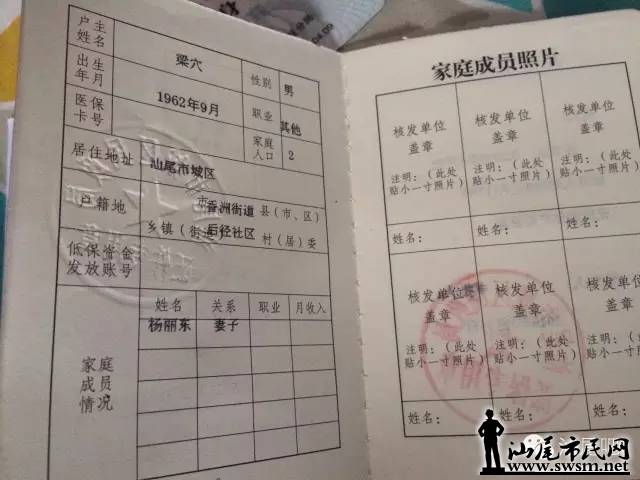 户主姓名 梁穴 性别 男
出生年月 1962年9月 职业 其他
医保卡号 家庭人口 2
居住地址 汕尾市城区
户籍地 市香洲街道县（市、区）
乡镇（街 后径社区 村（居）委
低保资金发放账号
家庭成员情况
姓名 关系 职业 月收入
杨丽东 妻子
家庭成员照片
核发单位 核发单位 核发单位
盖章 盖章 盖章
注明：（此处 注明：（此处 注明：（此处
贴小一寸照片） 贴小一寸照片） 贴小一寸照片）
姓名： 姓名： 姓名：
核发单位 核发单位 核发单位
盖章 盖章 盖章
注明：（此处 注明：（此处 注明：（此处
贴小一寸照片） 贴小一寸照片） 贴小一寸照片）
姓名： 姓名： 姓名：
汕尾市民网
www.swsm.net